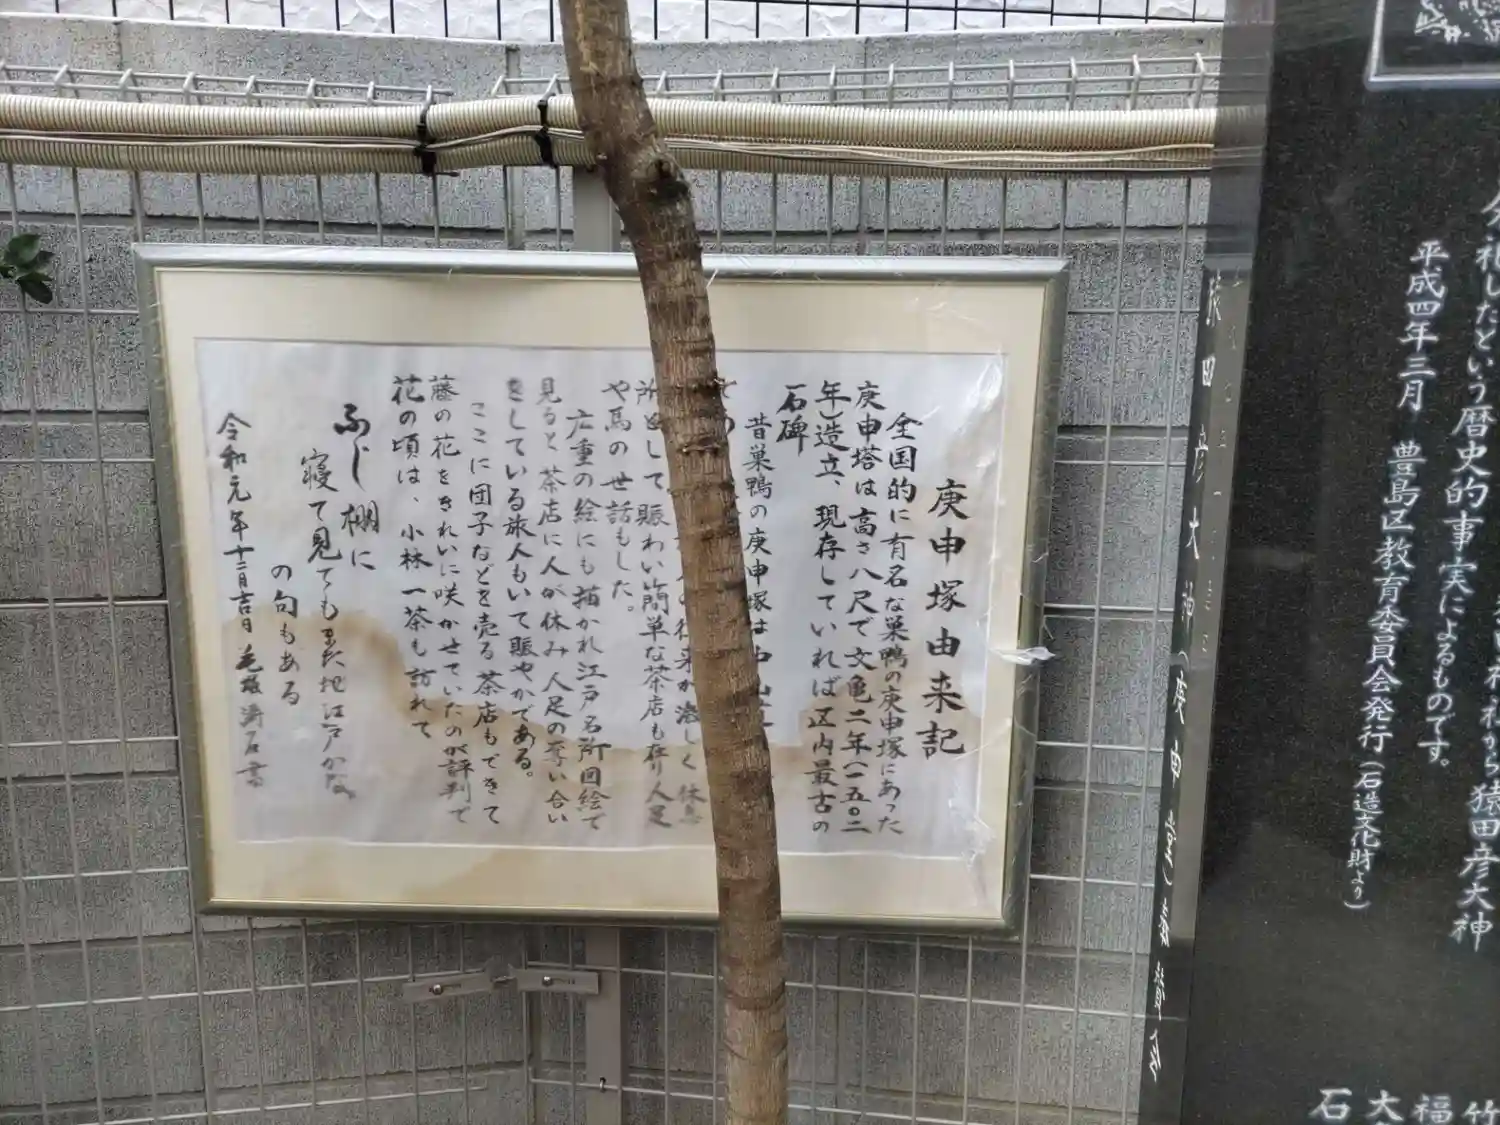 庚申塚由来記
全国的に有名な巣鴨の庚申塚にあった
庚申塔は高さ八尺で文亀二年(一五〇二
年)造立、現存していれば区内最古の
石碑
昔巣鴨の庚申塚は中山道
所として賑わい簡単な茶店も在り人足
や馬の世話もした。
広重の絵にも描かれ江戸名所図絵で
見ると茶店に人が休み人足の奪い合い
をしている旅人もいて賑やかである。
ここに団子などを売る茶店もできて
藤の花をきれいに咲かせていたのが評判で
花の頃は、小林一茶も訪れて
ふじ棚に
寝て見てもまた地江戸かな
の句もある
令和元年十二月吉日
札したという暦史的事実によるものです。
平成四年三月 豊島区教育委員会発行(石造文化財より)
から猿田彦大神
猿田彦大神(庚申堂)
竹
福
大
石